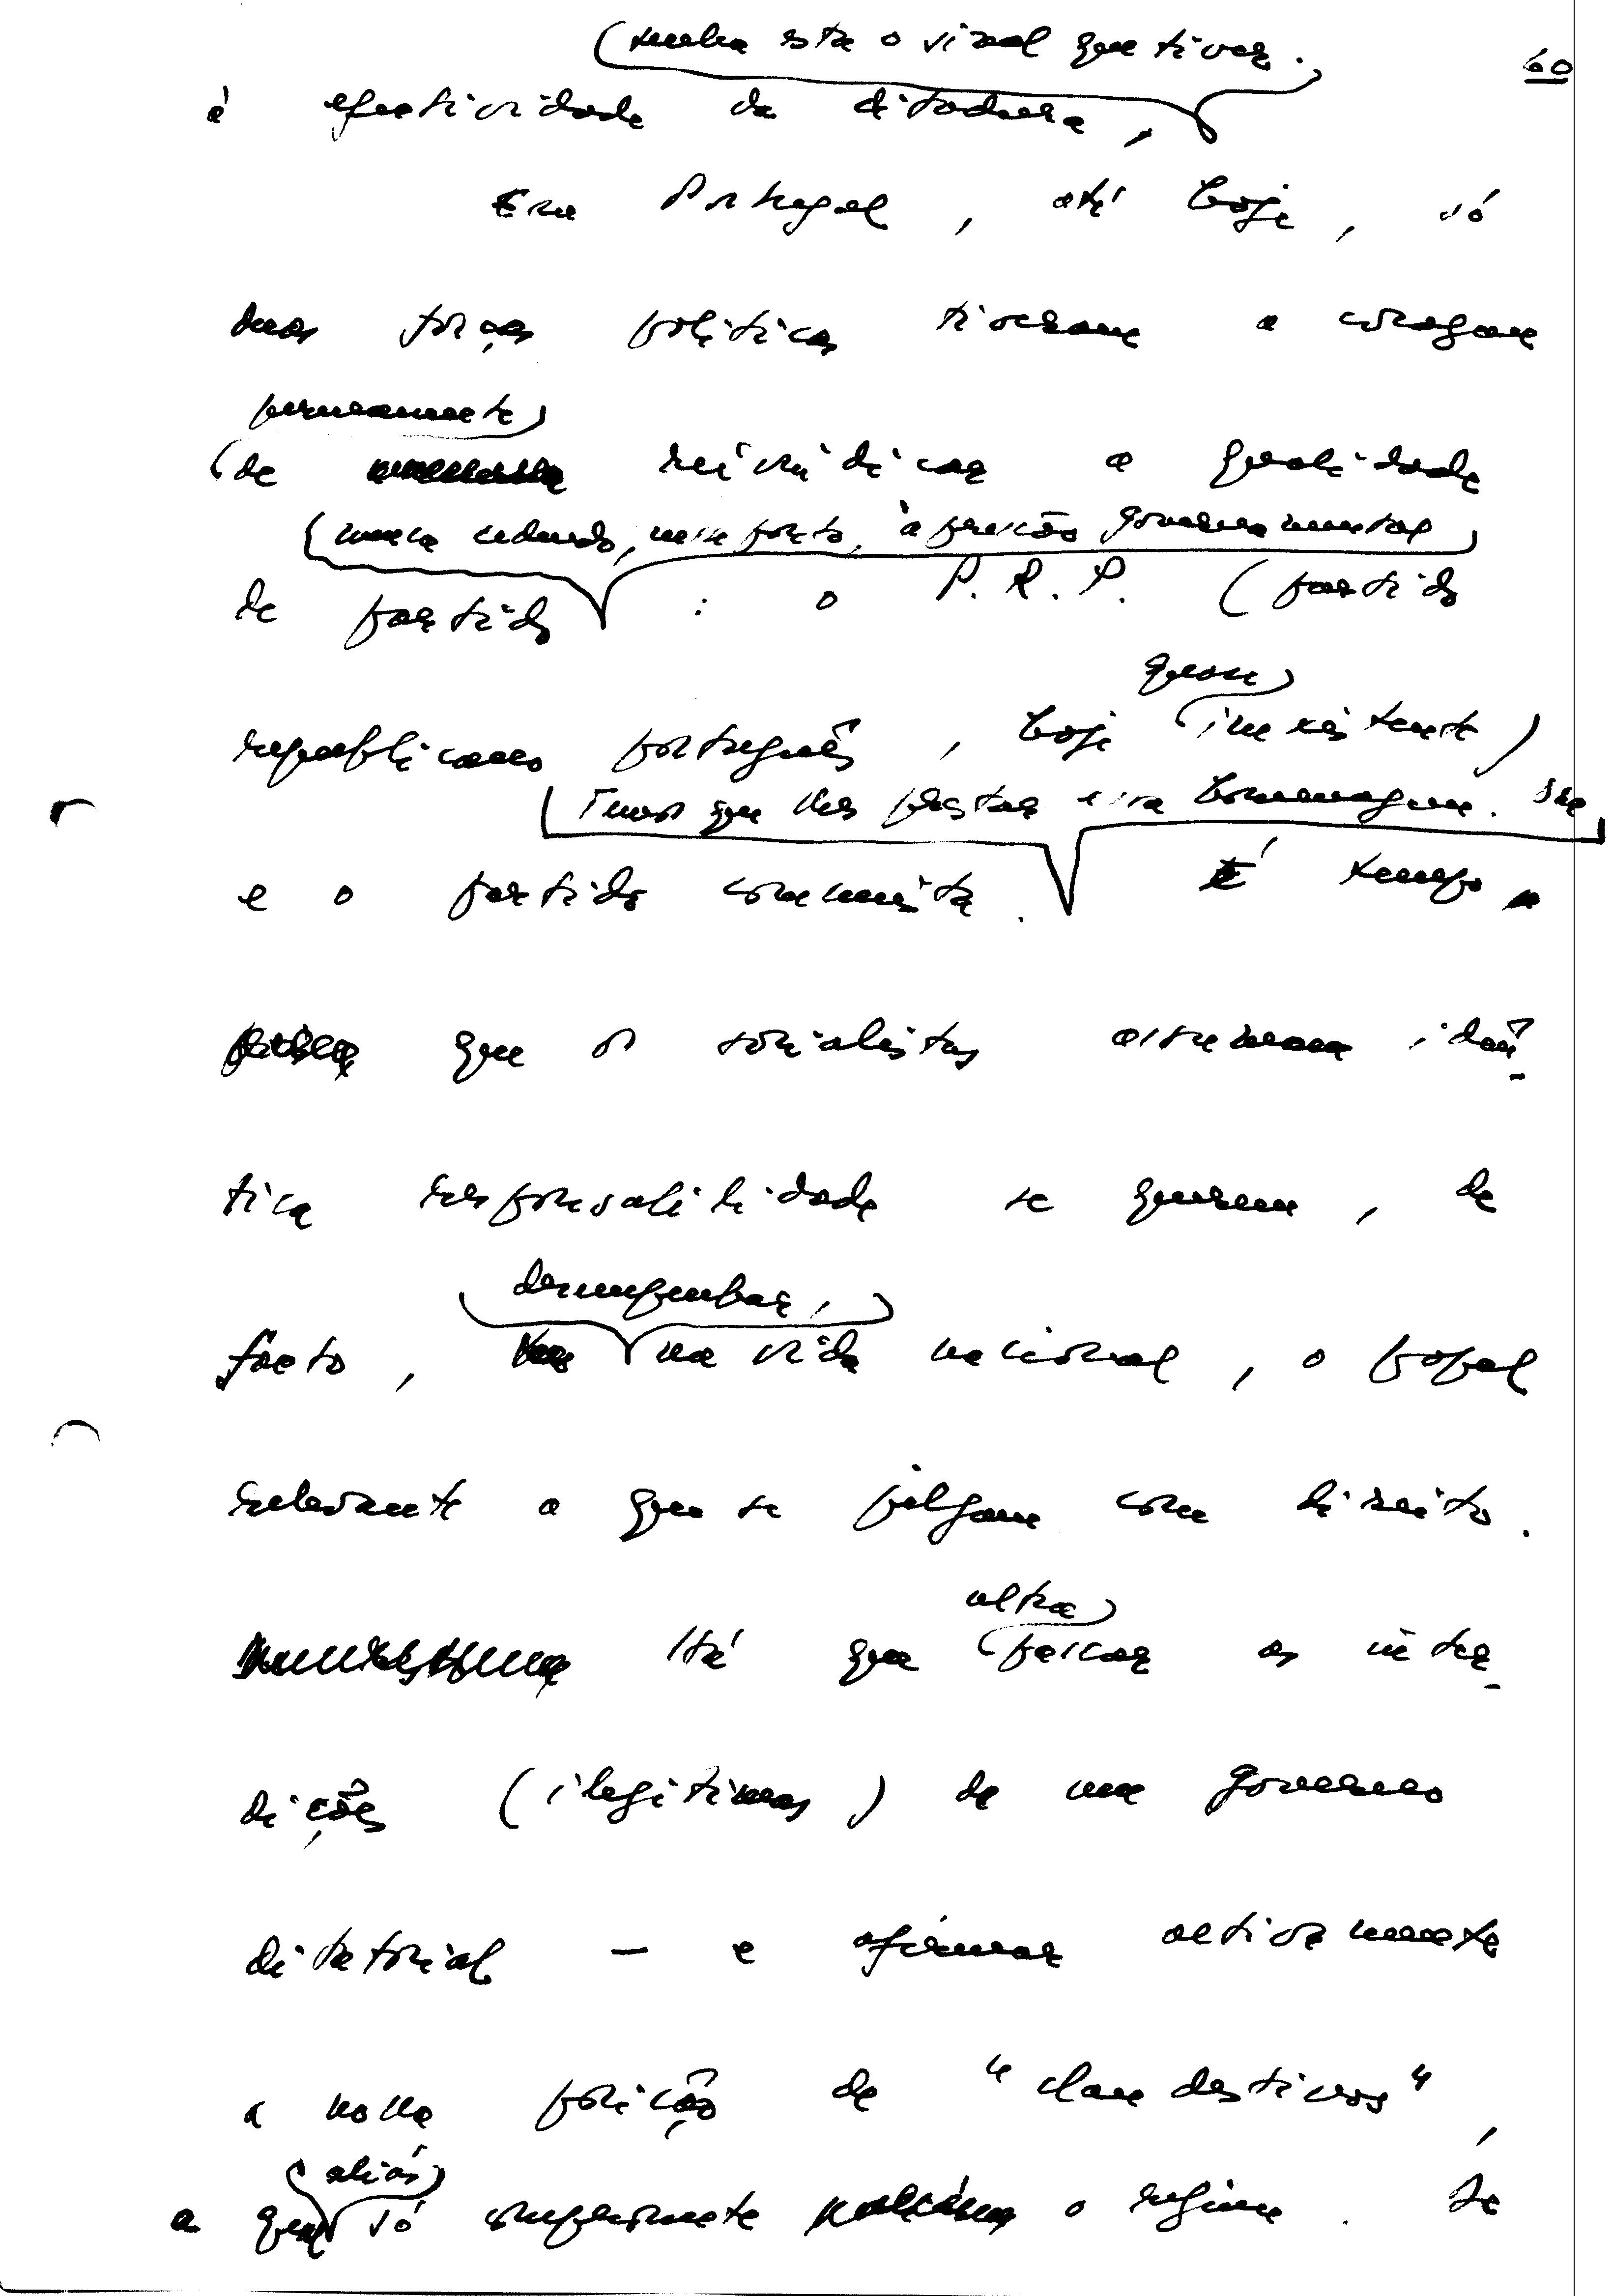 tenha esta o visual que tiver.
60
à efectividade da ditadura,
Em Portugal, até hoje, só
duas forças políticas tiveram a coragem
permanente
de reivindicar a qualidade
nunca cedendo, neste ponto, à pressão governamental
de partido : o P.R.P. (partido
quase
republicano português, hoje inexistente)
Temos que lhes prestar essa homenagem.
e o partido comunista. É tempo
que os socialistas assumam idên-
tica responsabilidade se querem, de
desempenhar,
facto, na vida nacional, o papel
relevante a que se julgam com direito.
ultra
Há que passar as inter-
dições (ilegítimas) de um governo
ditatorial – e afirmar activamente
a nossa posição de "clandestinos",
aliás
a que só o regime. Se